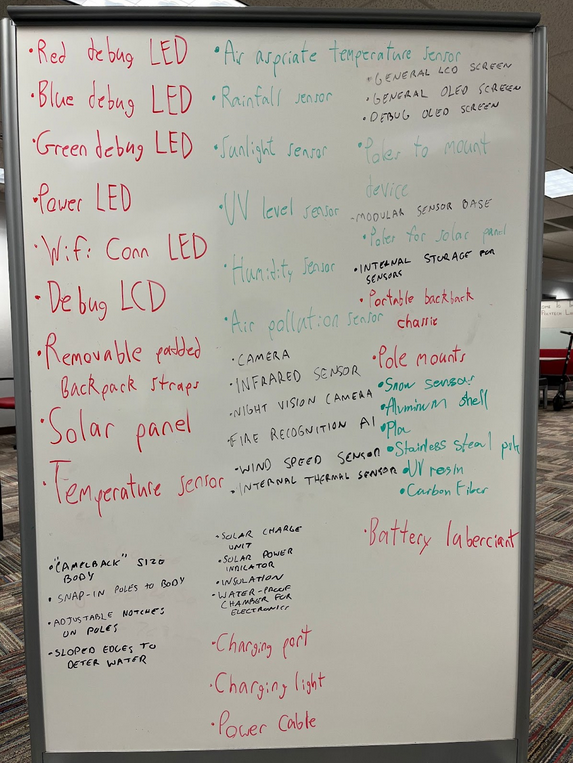 •Red debug LED
•Blue debug LED
•Green debug LED
•Power LED
•Wifi Conn LED
•Debug LCD
•Removable padded
Backpack straps
•Solar panel
•Temperature sensor
•"CAMELBACK" SIZE
BODY
•SNAP-IN POLES TO BODY
•ADJUSTABLE NOTCHES
ON POLES
•SLOPED EDGES TO
DETER WATER
•Air aspriate temperature sensor
•Rainfall sensor
•Sunlight sensor
•UV level sensor
•Humidity sensor
•Air pollution sensor
•CAMERA
•INFRARED SENSOR
•NIGHT VISION CAMERA
•FIRE RECOGNITION AI
•WIND SPEED SENSOR
•INTERNAL THERMAL SENSOR
•SOLAR CHARGE
UNIT
•SOLAR POWER
INDICATOR
•INSULATION
•WATER-PROOF
CHAMBER FOR
ELECTRONICS
•Charging port
•Charging light
•Power Cable
•GENERAL LCD SCREEN
•GENERAL OLED SCREEN
•DEBUG OLED SCREEN
•Poles to mount
device
-MODULAR SENSOR BASE
•Poles for solar panel
•INTERNAL STORAGE FOR
SENSORS
•Portable backback
chassie
•Pole mounts
•Snow sensor
•Aluminum shell
•Pla
•Stainless steal pole
•UV resin
•Carbon Fiber
•Battery laberciant